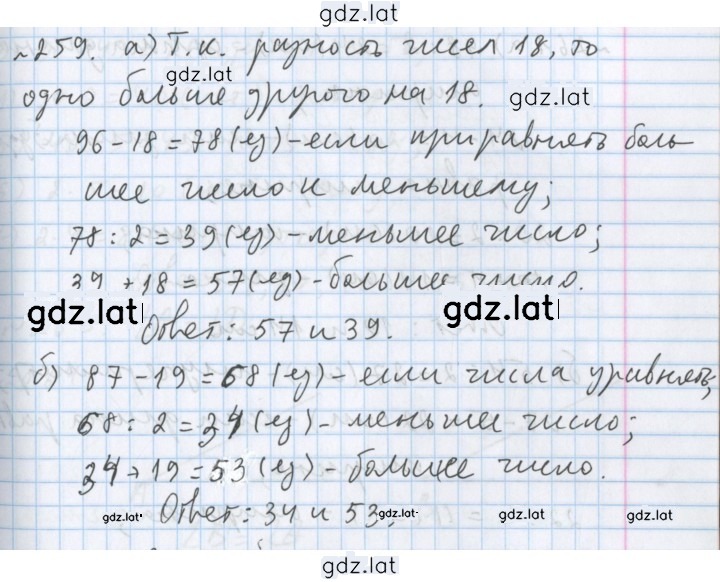 gdz.lat
№259. а) Т.к. разность чисел 18, то
gdz.lat
одно больше другого на 18.
gdz.lat
96 - 18 = 78 (ед) - если приравнять боль-
gdz.lat
шее число к меньшему;
78 : 2 = 39 (ед) - меньшее число;
39 + 18 = 57 (ед) - большее число.
gdz.lat
gdz.lat
Ответ: 57 и 39.
б) 87 - 19 = 68 (ед) - если числа уравнять;
68 : 2 = 34 (ед) - меньшее число;
34 + 19 = 53 (ед) - большее число.
Ответ: 34 и 53.
gdz.lat
gdz.lat
gdz.lat
gdz.lat
gdz.lat